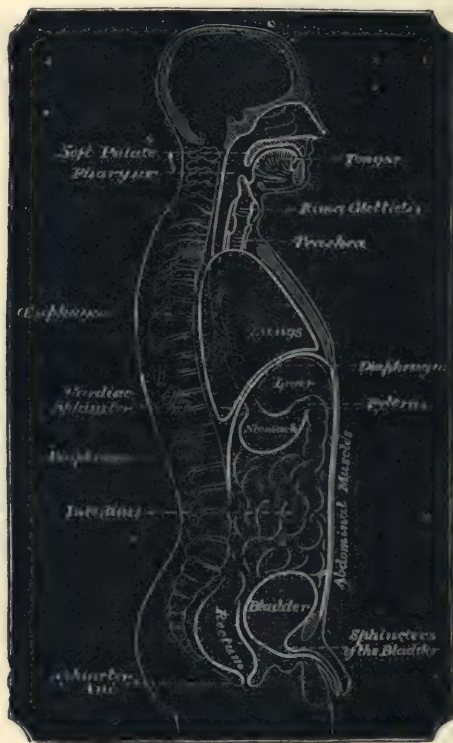 Soft Palate
Pharynx
Tongue
Rima Glottidis
Trachea
Lungs
Diaphragm
Liver
Cardiac
Sphincter
Pylorus
Stomach
Intestines
Abdominal Muscles
Bladder
Rectum
Sphincters
of the Bladder
Sphincter
Ani